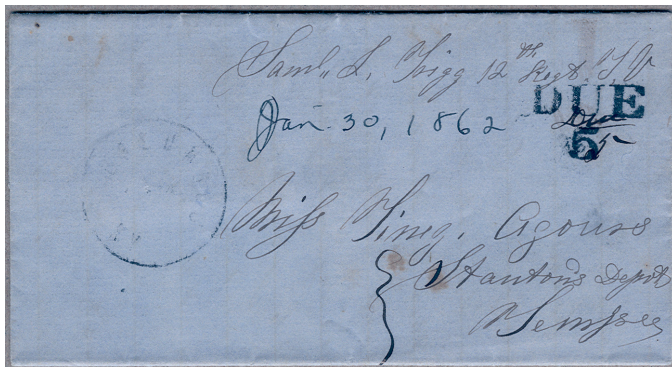 Saml. L. Trigg 12th Regt. T. V
DUE
Jan. 30, 1862 Due
5 5
COLUMBUS
KY
Miss Ving. Agours
Stanton's Depot
Tennssee